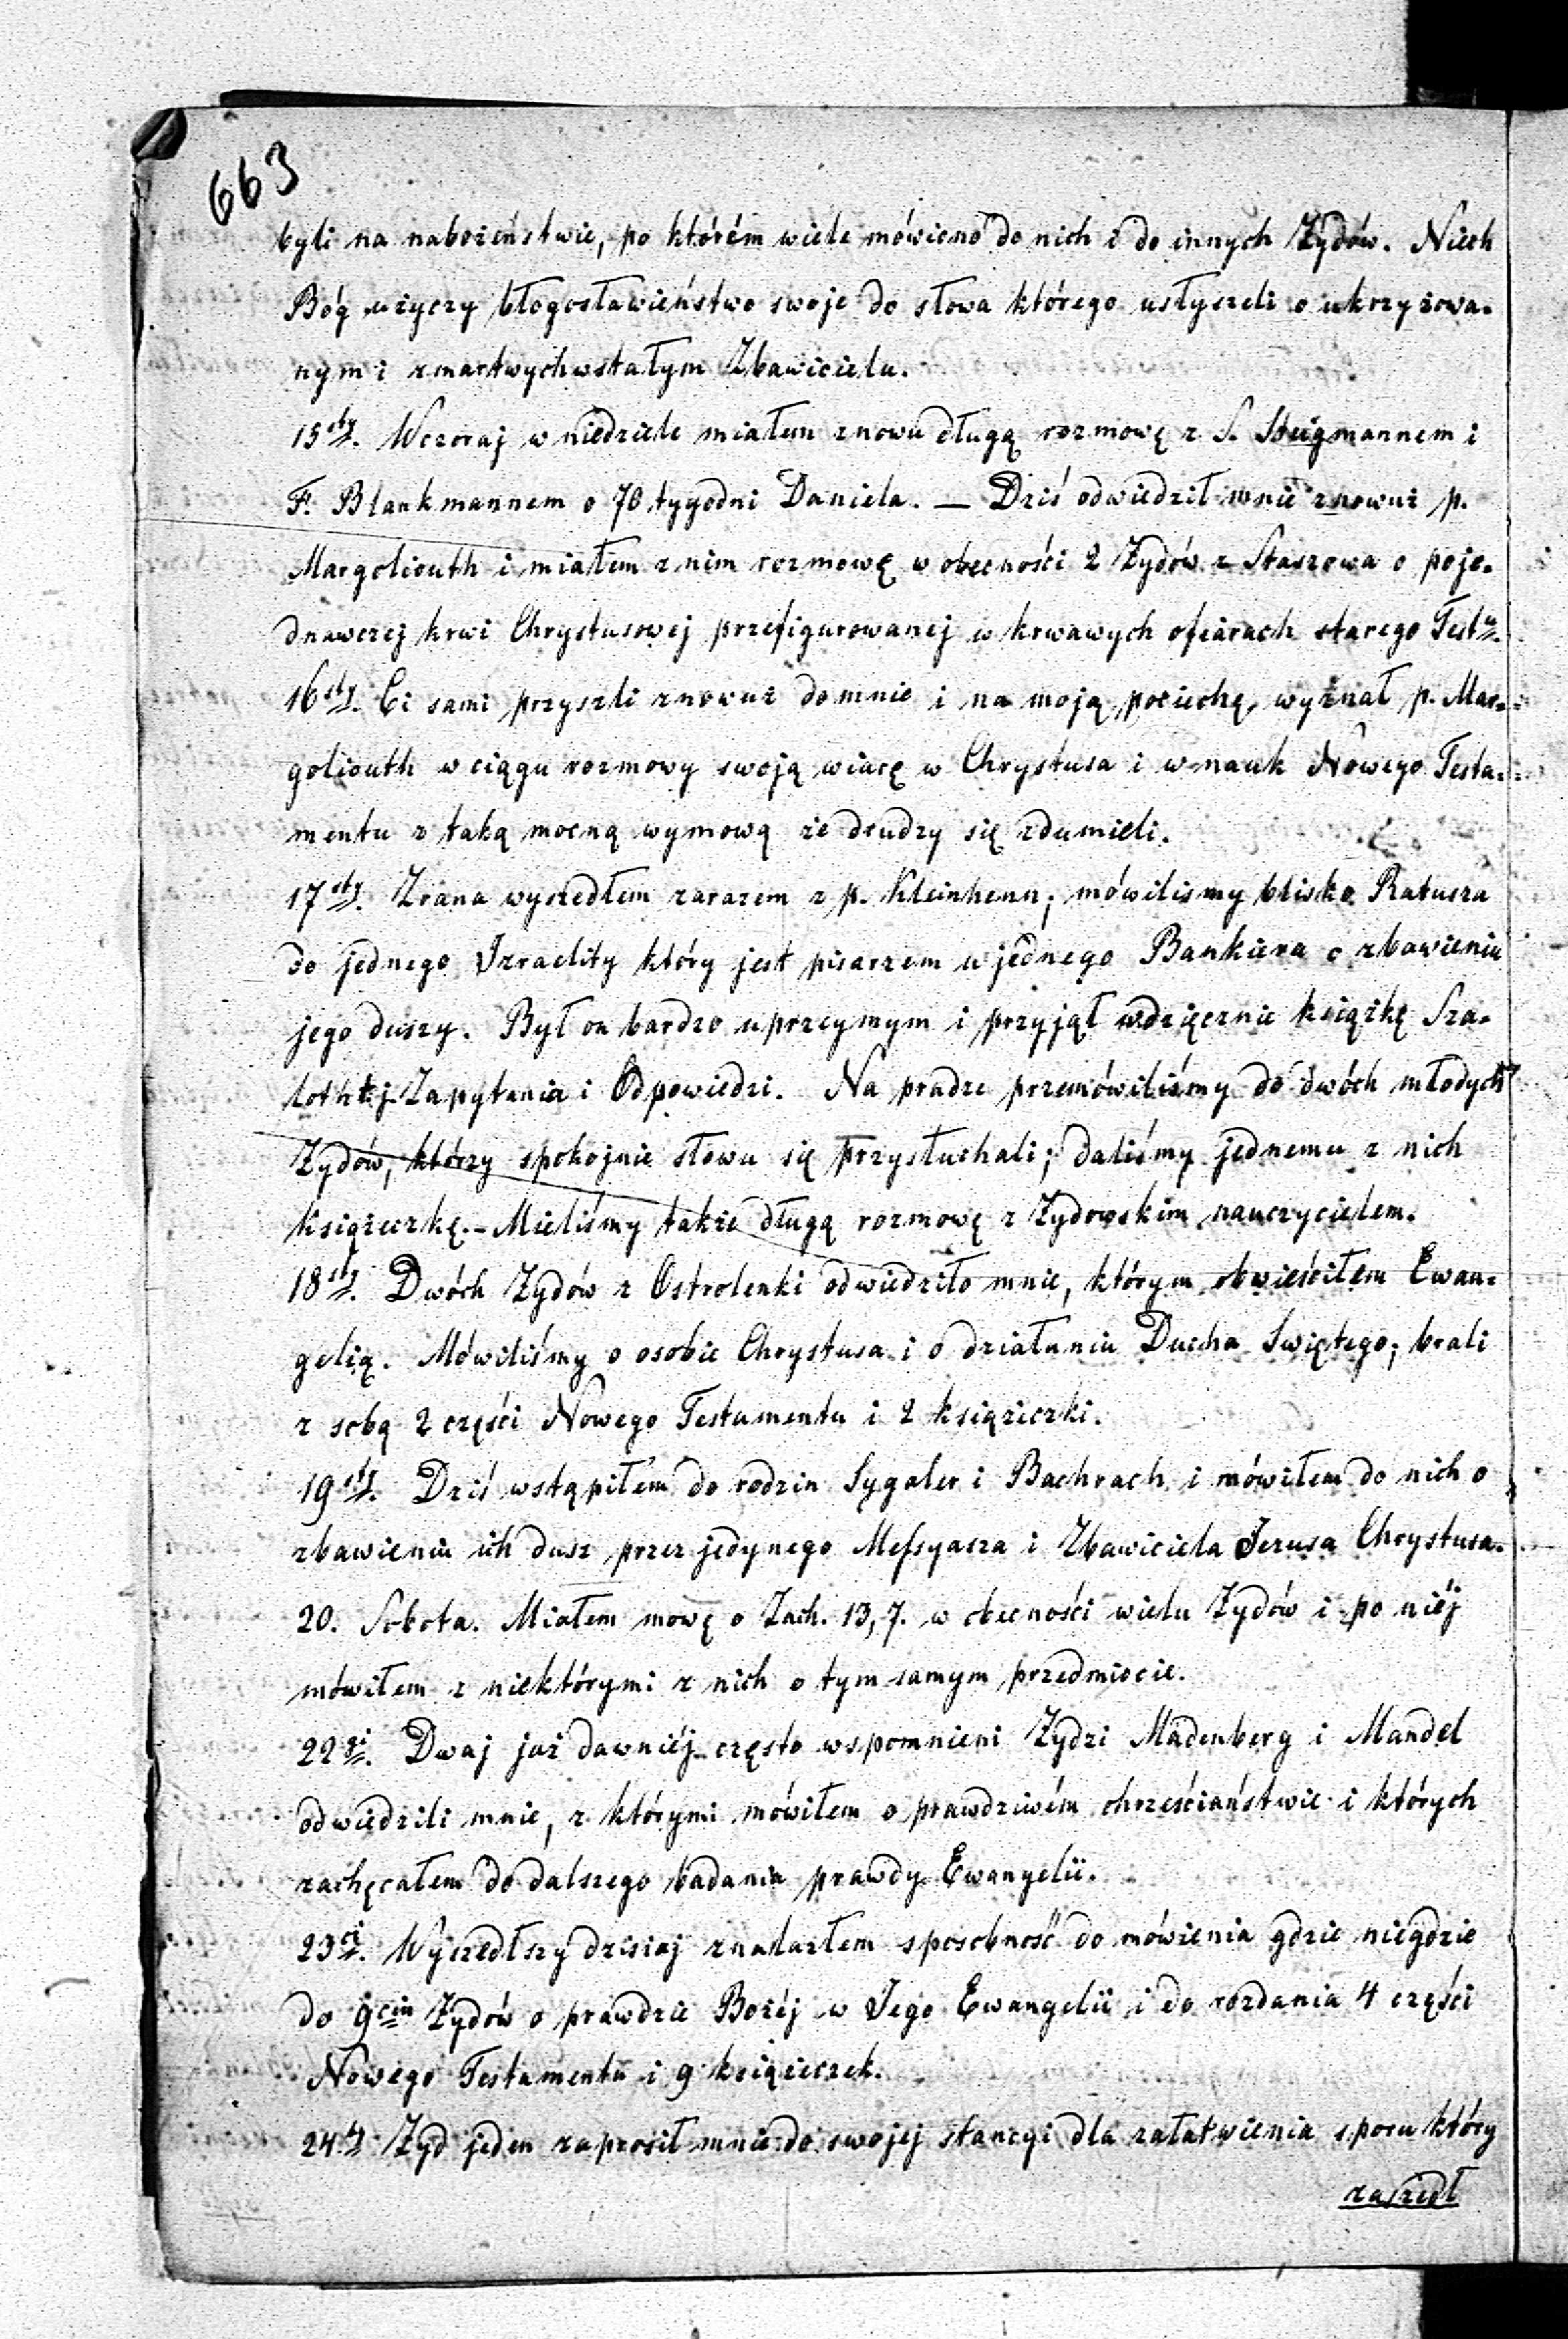 663
byli na nabożeństwie, po którém wiele mówiono do nich i do innych Żydów. Niech
Bóg użyczy błogosławieństwo swoje do słowa którego usłyszeli o ukrzyżowa-
nym i zmartwychwstałym Zbawicielu.
15sty. Wczoraj w niedziele miałem znowu długą rozmowę z S. Steigmannem i
F. Blankmannem o 70 tygodni Daniela. — Dziś odwiedził mnie znowuż p.
Margoliouth i miałem z nim rozmowę w obecności 2 Żydów z Staszowa o poje-
dnawczej krwi Chrystusowej przefigurowanej w krwawych ofiarach starego Testu.
16sty. Ci sami przyszli znowuż do mnie i na moją pociechę, wyznał p. Mar-
goliouth w ciągu rozmowy swoją wiarę w Chrystusa i w nauk Nowego Testa-
mentu z taką mocną wymową że drudzy się zdumieli.
17sty. Zrana wyszedłem zarazem z p. Kleinhenn; mówilismy blisko Ratusza
do jednego Izraelity który jest pisarzem u jednego Bankiera o zbawieniu
jego duszy. Był on bardzo uprzejmym i przyjął wdzięcznie książkę Sza-
lottej Zapytania i Odpowiedzi. Na pradze przemówiliśmy do dwóch młodych
Żydów, którzy spokojnie słowu się przysłuchali; daliśmy jednemu z nich
książeczkę. – Mieliśmy także długą rozmowę z Żydowskim nauczycielem.
18sty. Dwóch Żydów z Ostrolenki odwiedziło mnie, którym obwieściłem Ewan-
gelią. Mówiliśmy o osobie Chrystusa i o działaniu Ducha Swiętego; brali
z sobą 2 części Nowego Testamentu i 2 książeczki.
19sty. Dziś wstąpiłem do rodzin Sygaler i Bachrach i mówiłem do nich o
zbawieniu ich dusz przez jedynego Messyasza i Zbawiciela Jezusa Chrystusa.
20. Sobota. Miałem mowę o Zach. 13,7. w obecności wielu Żydów i po niéj
mówiłem z niektórymi z nich o tym samym przedmiocie.
22gi. Dwaj już dawniéj często wspomnieni Żydzi Madenberg i Mandel
odwiedzili mnie, z którymi mówiłem o prawdziwém chrześciaństwie i których
zachęcałem do dalszego badania prawdy Ewangelii.
23ci. Wyszedłszy dzisiaj znalazłem sposobność do mówienia gdzie niegdzie
do 9ciu Żydów o prawdzie Bożéj w Jego Ewangelii i do rozdania 4 części
Nowego Testamentu i 9 książeczek.
24ty Żyd jeden zaprosił mnie do swojej stancyi dla załatwienia sporu który
zaszedł